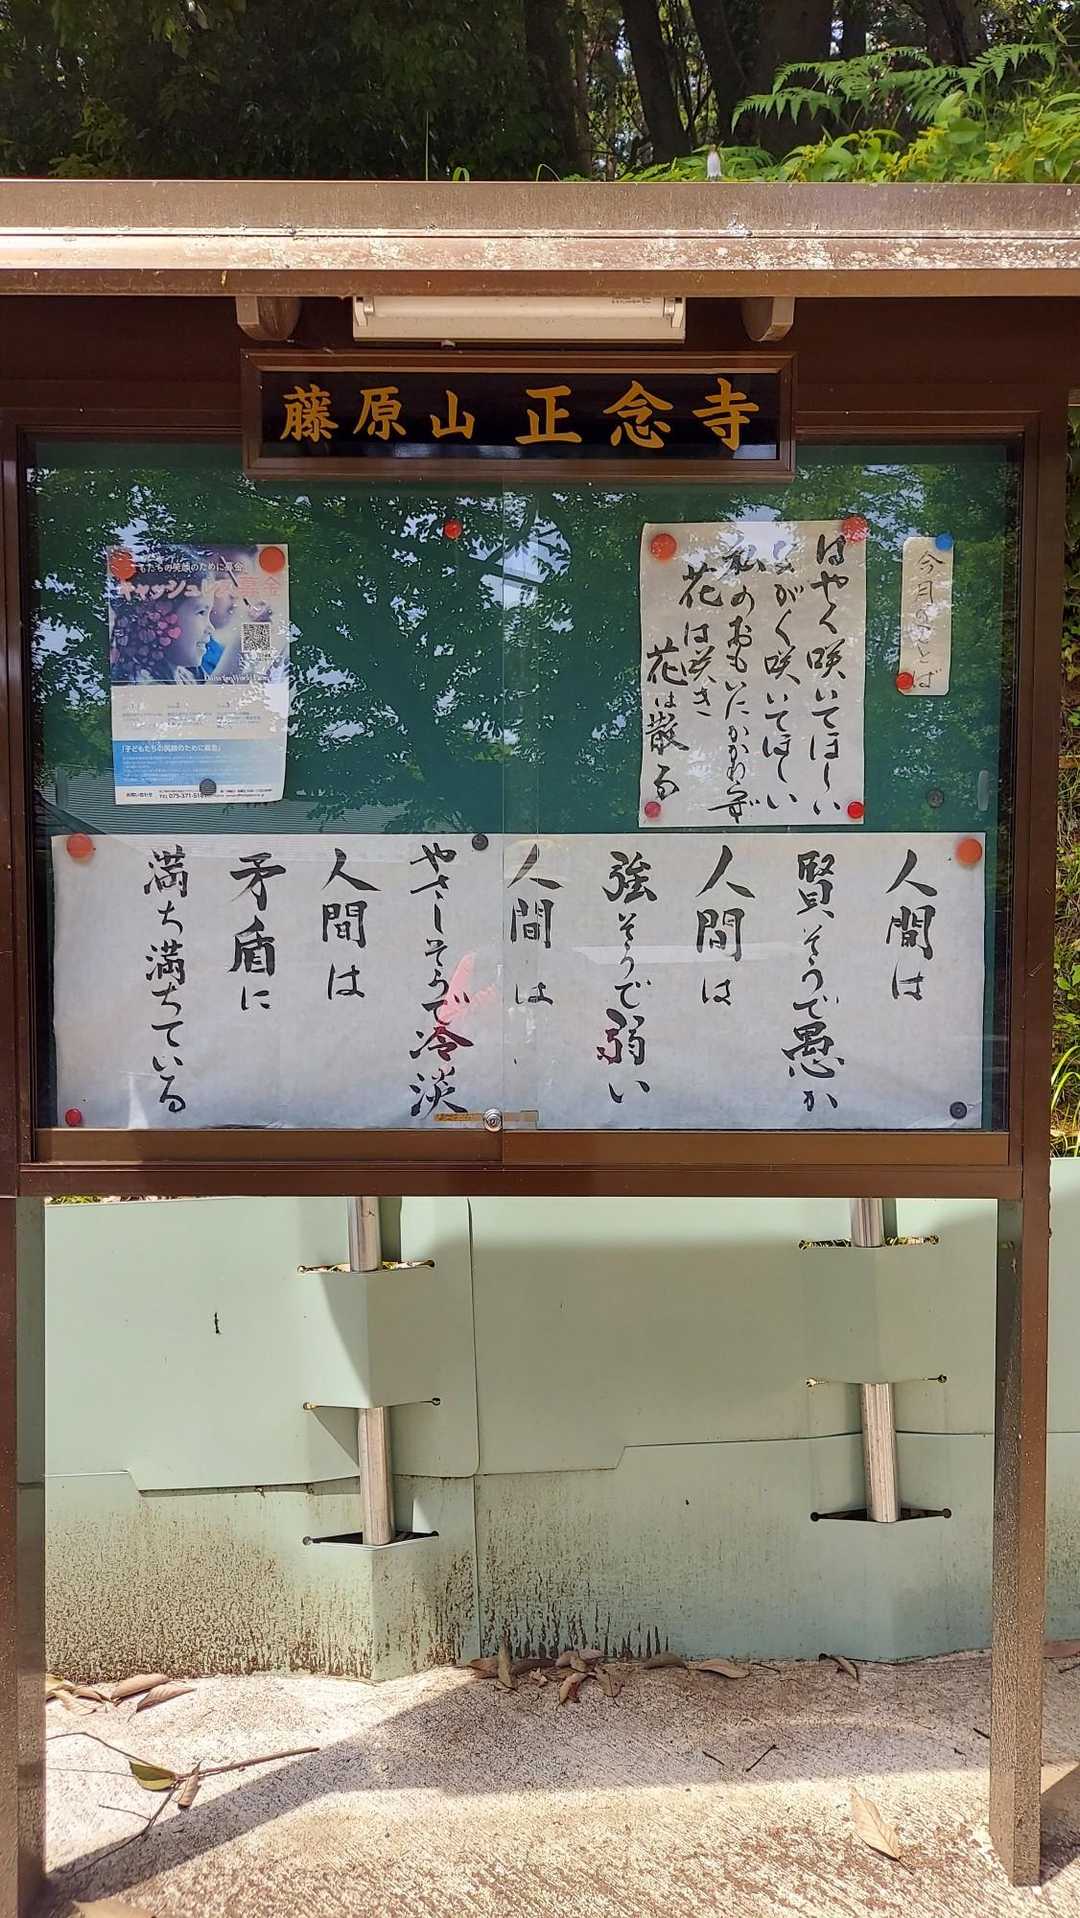 藤原山 正念寺
今月のことば
はやく咲いてほしい
ながく咲いてほしい
私のおもいにかかわらず
花は咲き
花は散る
人間は
賢そうで愚か
人間は
強そうで弱い
人間は
やさしそうで冷淡
人間は
矛盾に
満ち満ちている
子どもたちの笑顔のために募金
キャッシュレス募金
Dana for World Peace
「子どもたちの笑顔のために募金」
お問い合わせ